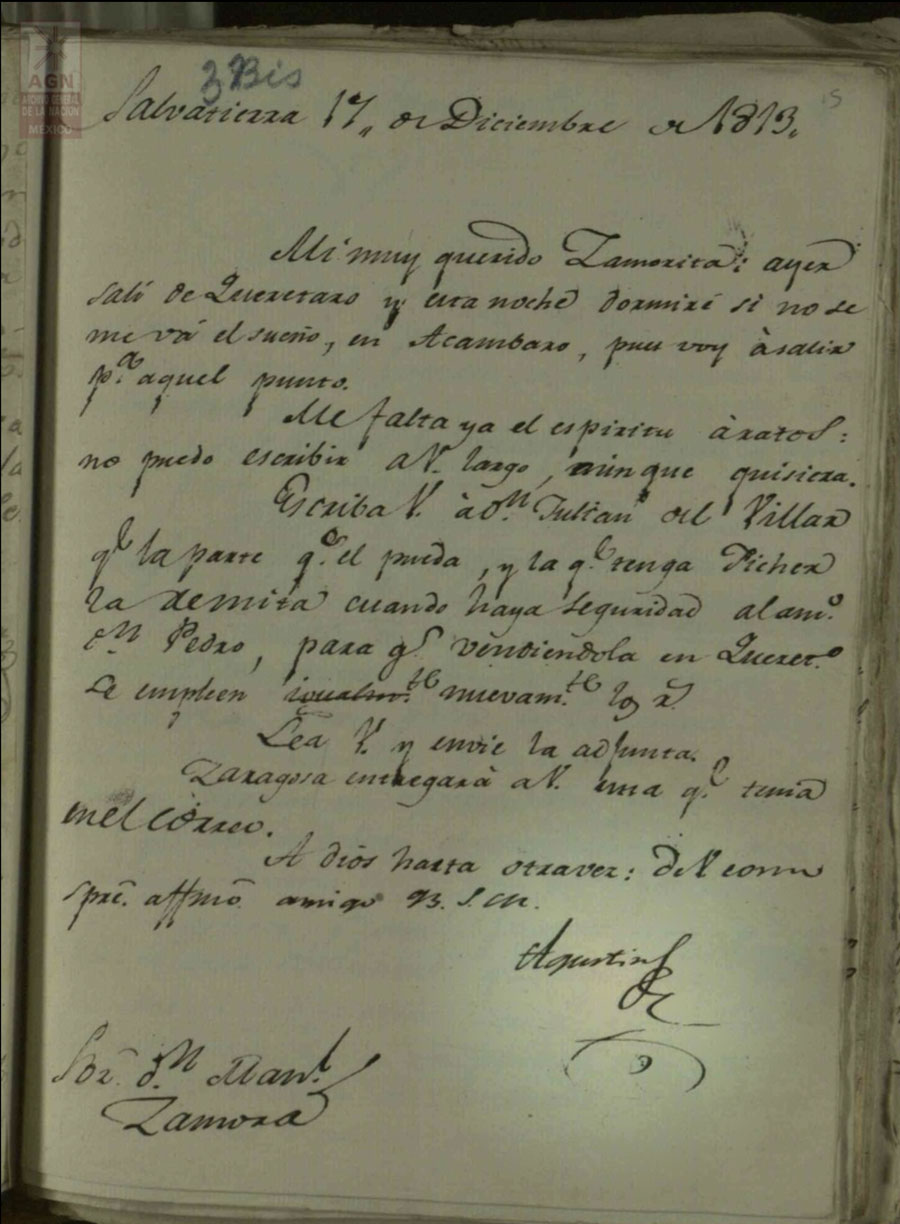 AGN
ARCHIVO GENERAL
DE LA NACION
MEXICO
3 Bis
15
Salvatierra 17,, de Diciembre de 1813.
Mi muy querido Zamorita: ayer
salí de Queretaro y esta noche dormiré si no se
me vá el sueño, en Acambaro, pues voy à salir
p.ª aquel punto.
Me falta ya el espiritu à ratos:
no puedo escribir a V. largo, aunque quisiera.
Escriba V. à d.n Julian del Villar
q.e la parte q.e el pueda, y la q.e tenga Picher
la remita cuando haya seguridad al am.o
d.n Pedro, para q.e vendiendola en Queret.o
se empleen nuevam.te los r.s
Lea V. y envie la adjunta.
Zaragosa entregará a V. una q.e tenia
en el correo.
A dios hasta otra vez: de V. como
spre. affmo. amigo B. S. M.
Agustin
Sor. d.n Man.l
Zamora